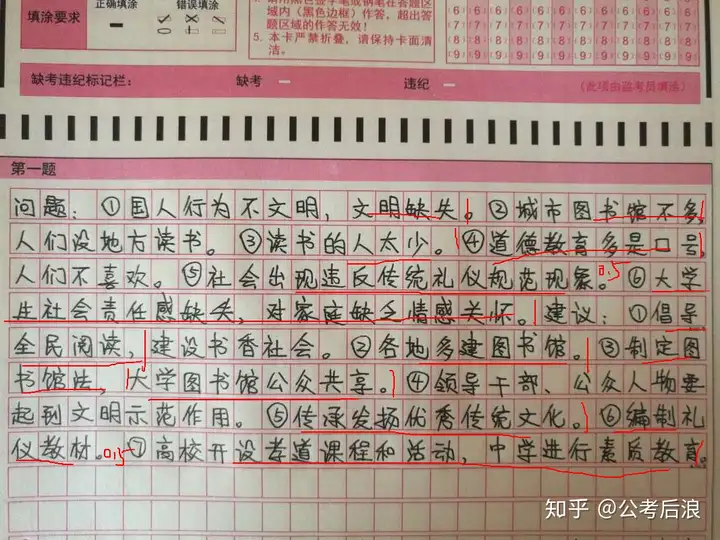 填涂要求
正确填涂
错误填涂
区域内（黑色边框）作答，超出答
题区域的作答无效！
5. 本卡严禁折叠，请保持卡面清
洁。
(6) (6) (6) (6) (6) (6)
(7) (7) (7) (7) (7) (7)
(8) (8) (8) (8) (8) (8)
(9) (9) (9) (9) (9) (9)
缺考违纪标记栏： 缺考 违纪 （此项由监考员填涂）
第一题
问题：①国人行为不文明，文明缺失。②城市图书馆不多，
人们没地方读书。③读书的人太少。④道德教育多是口号，
人们不喜欢。⑤社会出现违反传统礼仪规范现象。0.5 ⑥大学
生社会责任感缺失，对家庭缺乏情感关怀。建议：①倡导
全民阅读，建设书香社会。②各地多建图书馆。③制定图
书馆法，大学图书馆公众共享。④领导干部、公众人物要
起到文明示范作用。⑤传承发扬优秀传统文化。⑥编制礼
仪教材。0.5 ⑦高校开设孝道课程和活动，中学进行素质教育。
知乎 @公考后浪